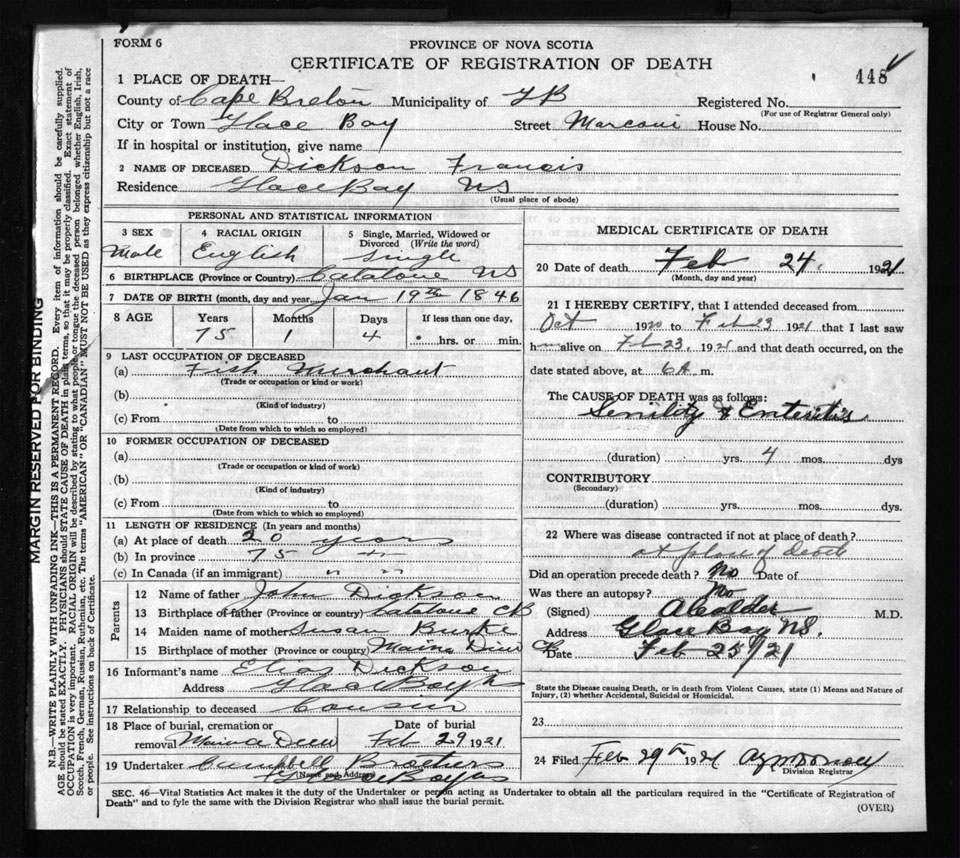 FORM 6
PROVINCE OF NOVA SCOTIA
CERTIFICATE OF REGISTRATION OF DEATH
448
1 PLACE OF DEATH—
County of Cape Breton Municipality of GB Registered No.
(For use of Registrar General only)
City or Town Glace Bay Street Marconi House No.
If in hospital or institution, give name
2 NAME OF DECEASED Dickson Francis
Residence Glace Bay NS
(Usual place of abode)
PERSONAL AND STATISTICAL INFORMATION
3 SEX 4 RACIAL ORIGIN 5 Single, Married, Widowed or Divorced (Write the word)
Male English Single
6 BIRTHPLACE (Province or Country) Catalone NS
7 DATE OF BIRTH (month, day and year) Jan 19th 1846
8 AGE Years Months Days If less than one day,
75 1 4 hrs. or min.
9 LAST OCCUPATION OF DECEASED
(a) Fish Merchant
(Trade or occupation or kind of work)
(b)
(Kind of industry)
(c) From to
(Date from which to which so employed)
10 FORMER OCCUPATION OF DECEASED
(a)
(Trade or occupation or kind of work)
(b)
(Kind of industry)
(c) From to
(Date from which to which so employed)
11 LENGTH OF RESIDENCE (In years and months)
(a) At place of death 20 years
(b) In province 75 "
(c) In Canada (if an immigrant) " "
Parents
12 Name of father John Dickson
13 Birthplace of father (Province or country) Catalone CB
14 Maiden name of mother Susan Burke
15 Birthplace of mother (Province or country) Maina Dieu CB
16 Informant's name Elias Dickson
Address Glace Bay
17 Relationship to deceased Cousin
18 Place of burial, cremation or removal Main a Dieu Date of burial Feb 29 1921
19 Undertaker Campbell Brothers
(Name and Address) Glace Bay NS
MEDICAL CERTIFICATE OF DEATH
20 Date of death Feb 24, 1921
(Month, day and year)
21 I HEREBY CERTIFY, that I attended deceased from
Oct 1920 to Feb 23 1921 that I last saw
him alive on Feb 23, 1921 and that death occurred, on the
date stated above, at 6 A m.
The CAUSE OF DEATH was as follows:
Senility & Enteritis
(duration) yrs. 4 mos. dys
CONTRIBUTORY
(Secondary)
(duration) yrs. mos. dys.
22 Where was disease contracted if not at place of death?
at place of death
Did an operation precede death? No Date of
Was there an autopsy? No
(Signed) A Calder M.D.
Address Glace Bay NS.
Date Feb 25/21
State the Disease causing Death, or in death from Violent Causes, state (1) Means and Nature of
Injury, (2) whether Accidental, Suicidal or Homicidal.
23
24 Filed Feb 29th 1921
Division Registrar
SEC. 46—Vital Statistics Act makes it the duty of the Undertaker or person acting as Undertaker to obtain all the particulars required in the "Certificate of Registration of
Death" and to fyle the same with the Division Registrar who shall issue the burial permit.
(OVER)
MARGIN RESERVED FOR BINDING
N.B.—WRITE PLAINLY WITH UNFADING INK—THIS IS A PERMANENT RECORD. Every item of information should be carefully supplied.
AGE should be stated EXACTLY. PHYSICIANS should STATE CAUSE OF DEATH in plain terms, so that it may be properly classified. Exact statement of
OCCUPATION is very important. RACIAL ORIGIN will be described by stating to what people or tongue the deceased person belonged whether English, Irish,
Scotch, French, German, Russian, Ruthenian, etc. The terms "AMERICAN" OR "CANADIAN" MUST NOT BE USED as they express citizenship but not a race
or people. See instructions on back of Certificate.